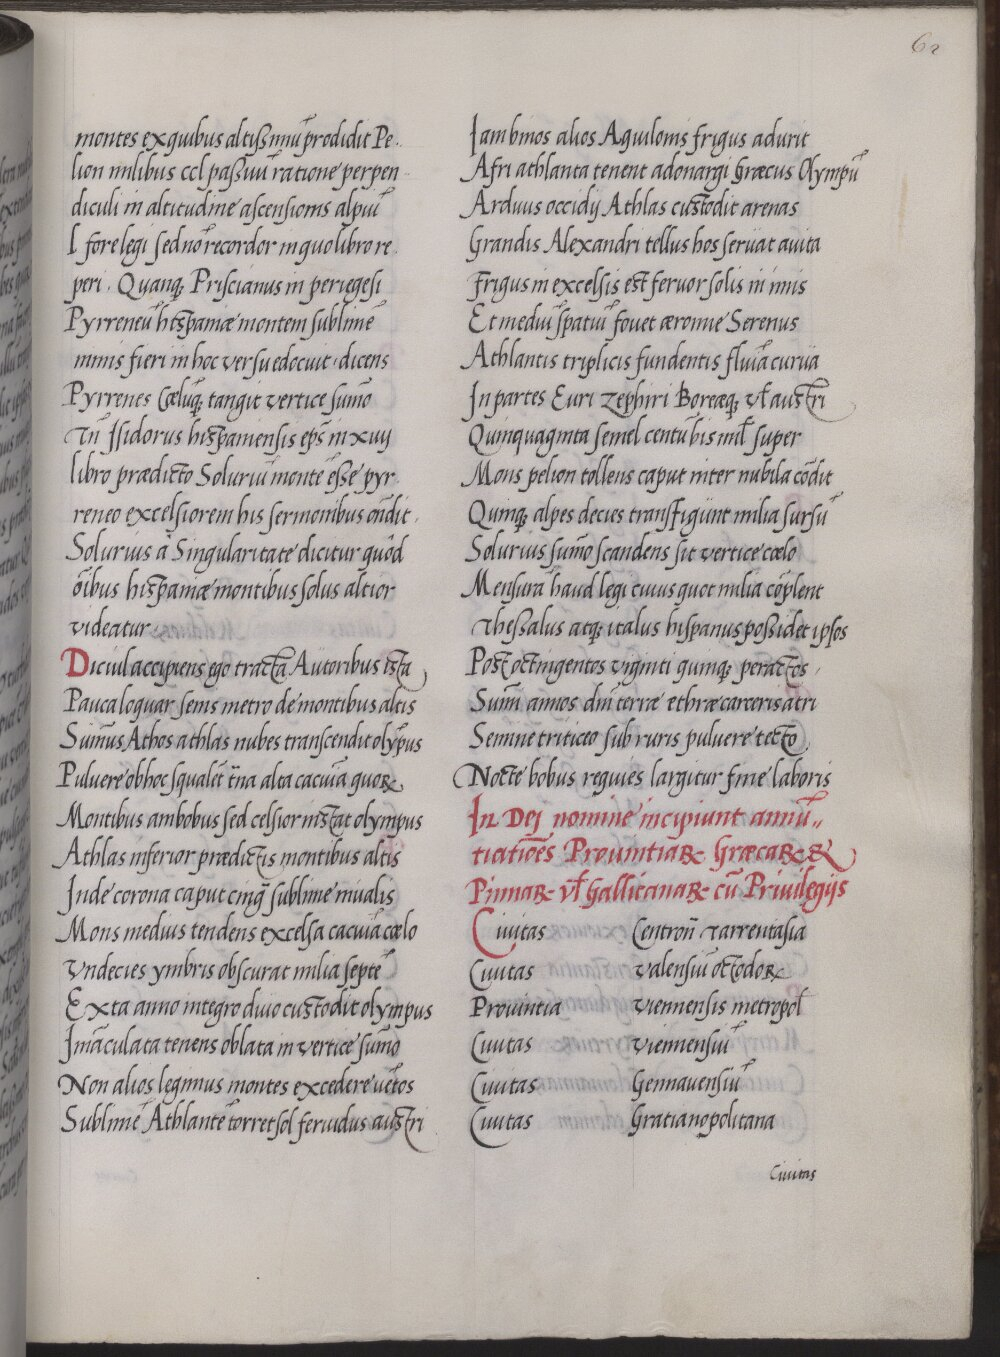 62
montes ex quibus altissimū prodidit Pe
lion milibus ccl passuū ratione perpen
diculi in altitudine ascensionis alpiū
L fore legi sed nō recordor in quo libro re
peri. Quanq; Priscianus in periegesi
Pyrreneū hispaniæ montem sublimē
nimis fieri in hoc versu edocuit· dicens
Pyrrenes Cælūq; tangit vertice sumō
Tn̄ Isidorus hispaniensis ep̄s in xiiij
libro prædicto Soluriū montē esse pyr
reneo excelsiorem his sermonibus on̄dit.
Solurius a Singularitate dicitur quōd
ōibus hispaniæ montibus solus altior
videatur.
Dicuil accipiens ego tracta Autoribus ista
Pauca loquar senis metro de montibus altis
Sumus Athos athlas nubes transcendit olȳpus
Pulvere ob hoc squalēt t̄na alta cacuīa quoꝝ
Montibus ambobus sed celsior instat olympus
Athlas inferior prædictis montibus altis
Inde corona caput cing̃ sublime nivalis
Mons medius tendens excelsa cacuīa cælo
Vndecies ymbris obscurat milia septē
Exta anno integro divo custodit olympus
Imāculata tenens oblata in vertice sumō
Non alios legimus montes excedere vētos
Sublimē Athlantē torret sol fervidus austri
Iam binos alios Aquilonis frigus adurit
Afri athlanta tenent adonargi Græcus Olympū
Arduus occidij Athlas custodit arenas
Grandis Alexandri tellus hos servat avita
Frigus in excelsis est fervor solis in imis
Et mediū spatiū fovet æronie Serenus
Athlantis triplicis fundentis fluīa curva
In partes Euri zephiri Boreæq; vl̄ austri
Quinquaginta semel centū bis mil̄ super
Mons pelion tollens caput inter nubila cōdit
Quinq; alpes decies transfigunt milia sursū
Solurius sumo scandens sit vertice cælo
Mensurā haud legi cuius quot milia cōplent
Thessalus atq; italus hispanus possidet ipsos
Post octingentos viginti quinq; peractos
Sum̄i annos dn̄i terræ ethræ carceris atri
Semine triticeo sub ruris pulvere tecto
Nocte bobus requies largitur fine laboris
In Dej nomine incipiunt annū„
tiatiōēs Provintiaꝝ Græcaꝝ &
Pinnaꝝ vl̄ Gallicanaꝝ cū Privilegijs
Civitas Centron̄ Tarrentasia
Civitas Valensiū octodoꝝ
Provintia Viennensis metropol
Civitas Viennensiū
Civitas Gennavensiū
Civitas Gratianopolitana
Civitas